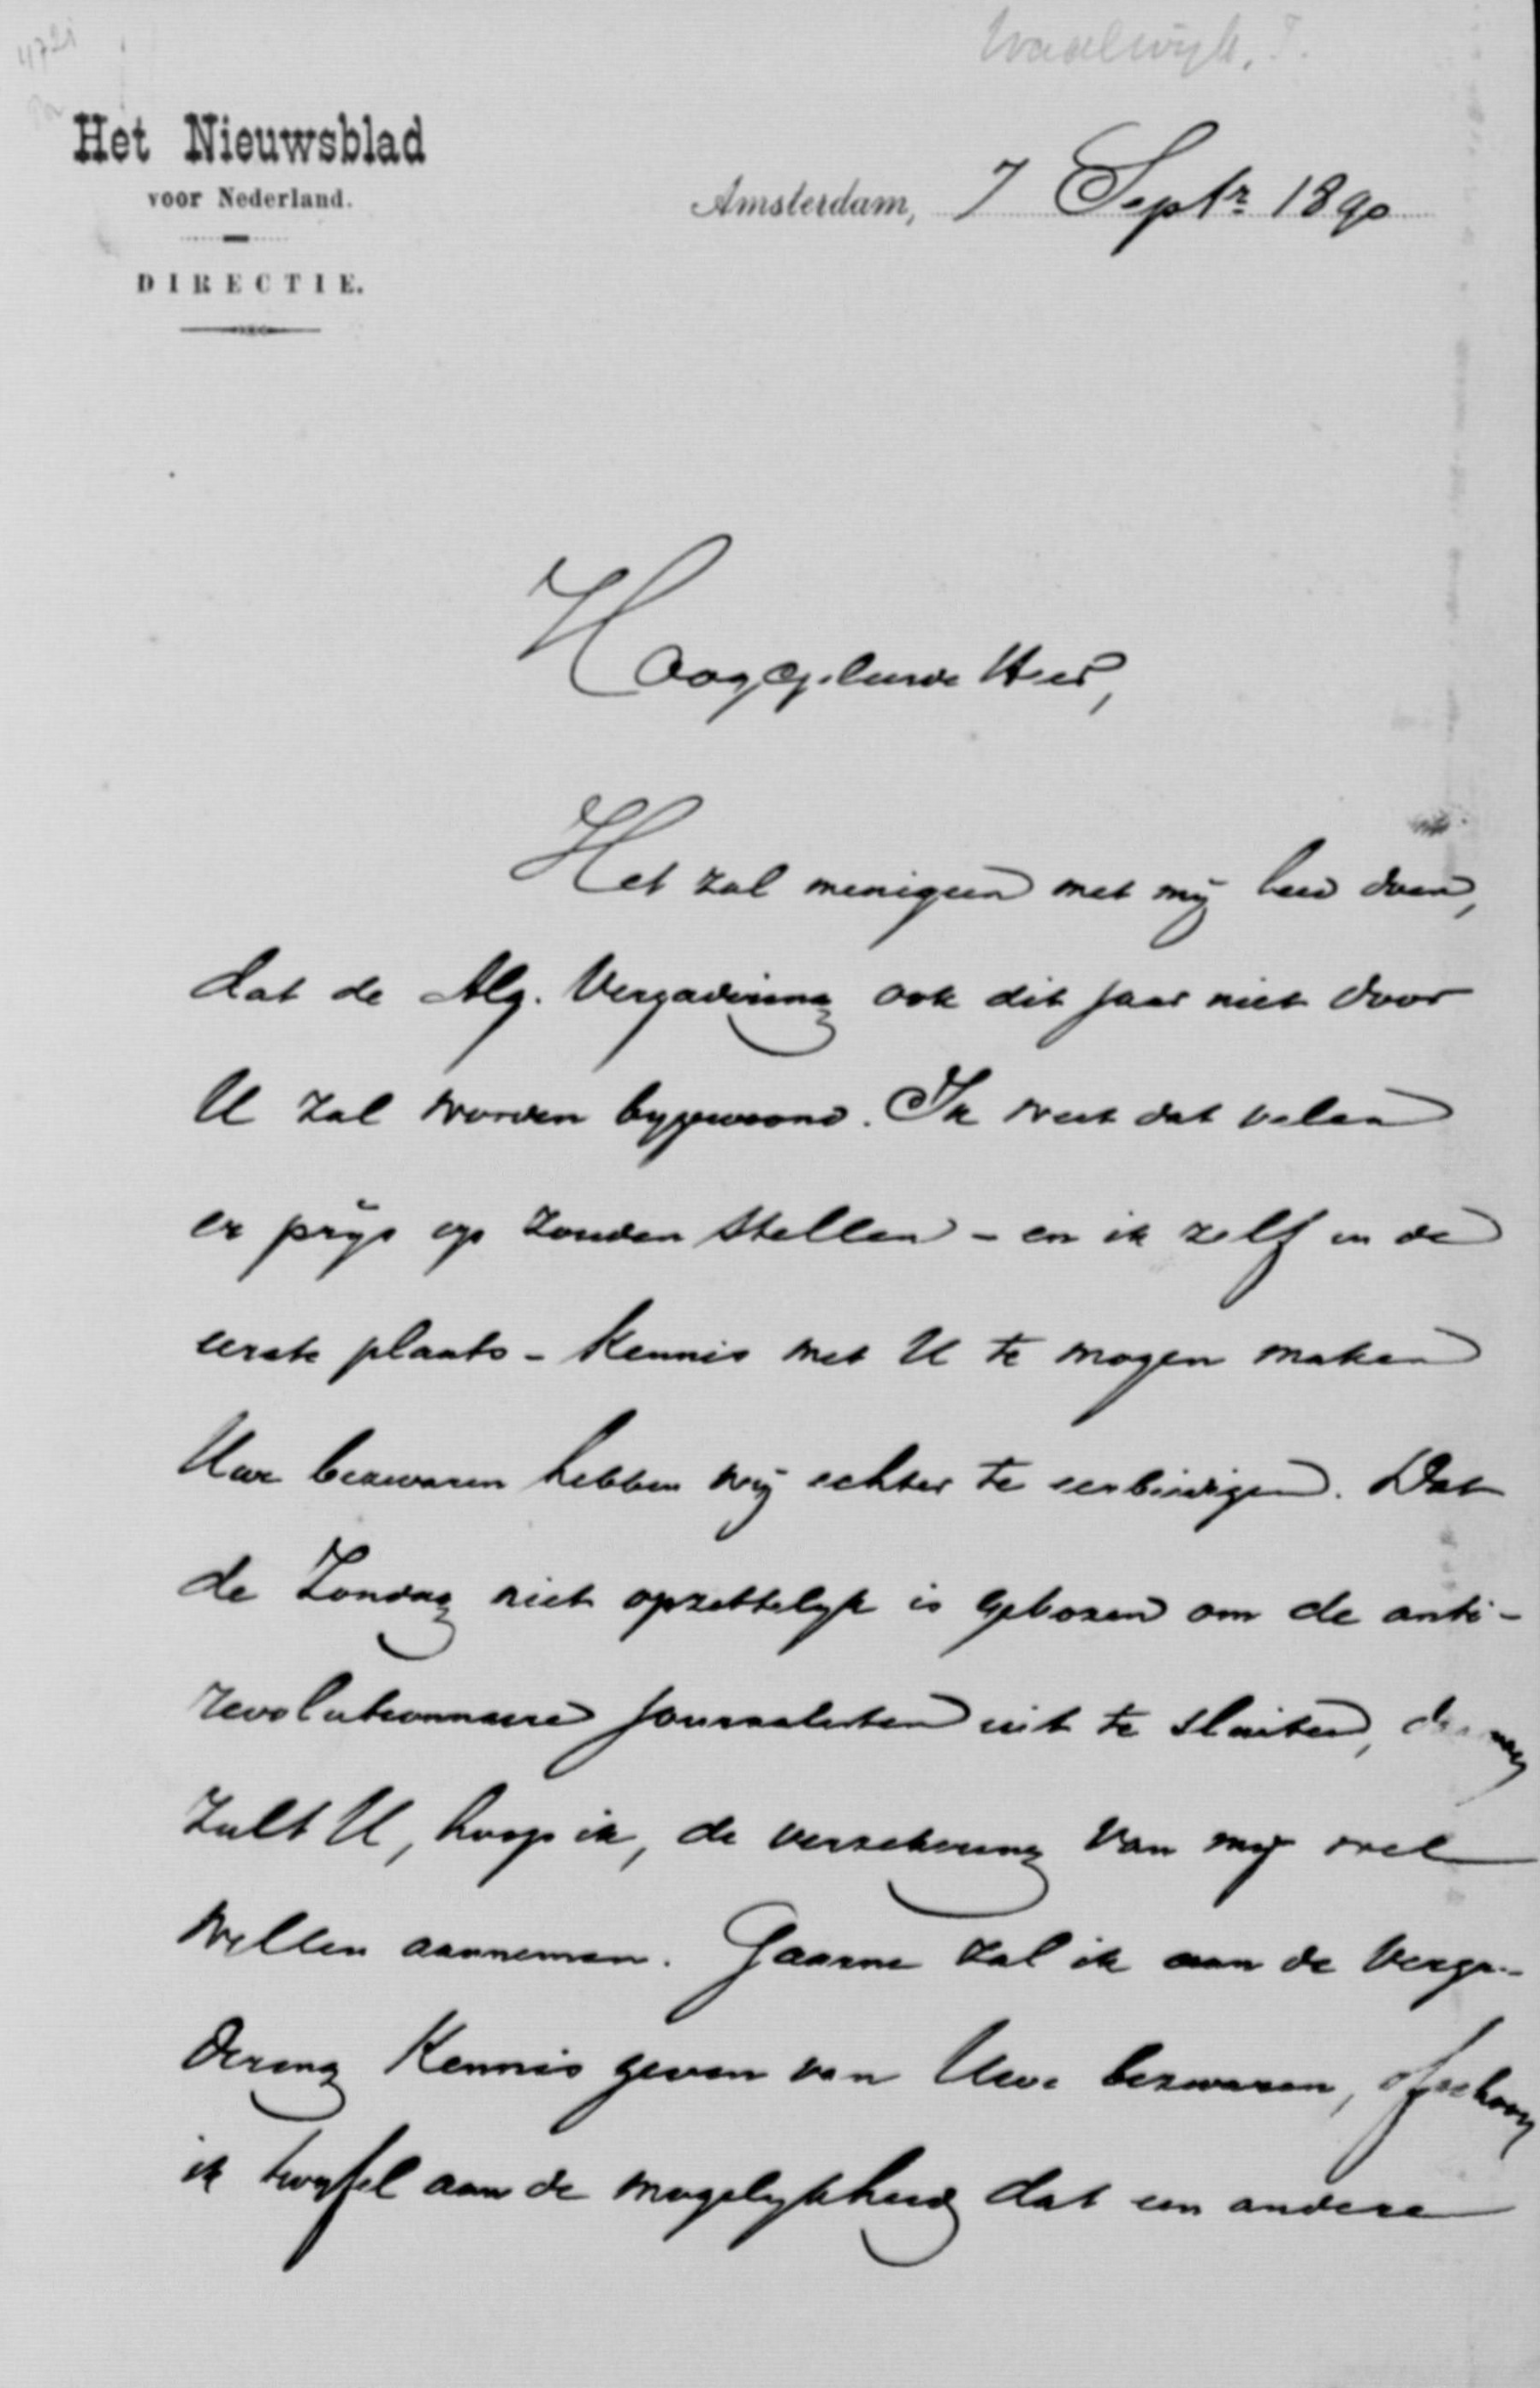 4721
Waalwijk, T.
Het Nieuwsblad
voor Nederland.
DIRECTIE.
Amsterdam, 7 Septr 1890
Hooggeleerde Heer,
Het zal menigeen met mij leed doen,
dat de Alg. Vergadering ook dit jaar niet door
U zal worden bygewoond. Ik weet dat velen
er prijs op zouden stellen - en ik zelf in de
eerste plaats - kennis met U te mogen maken
Uwe bezwaren hebben wij echter te eerbiedigen. Dat
de Zondag niet opzettelyk is gekozen om de anti-
revolutionnaire journalisten uit te sluiten,
zult U, hoop ik, de verzekering van mij wel
willen aannemen. Gaarne zal ik aan de Verga-
dering kennis geven van Uwe bezwaren, ofschoon
ik twyfel aan de mogelykheid dat een andere